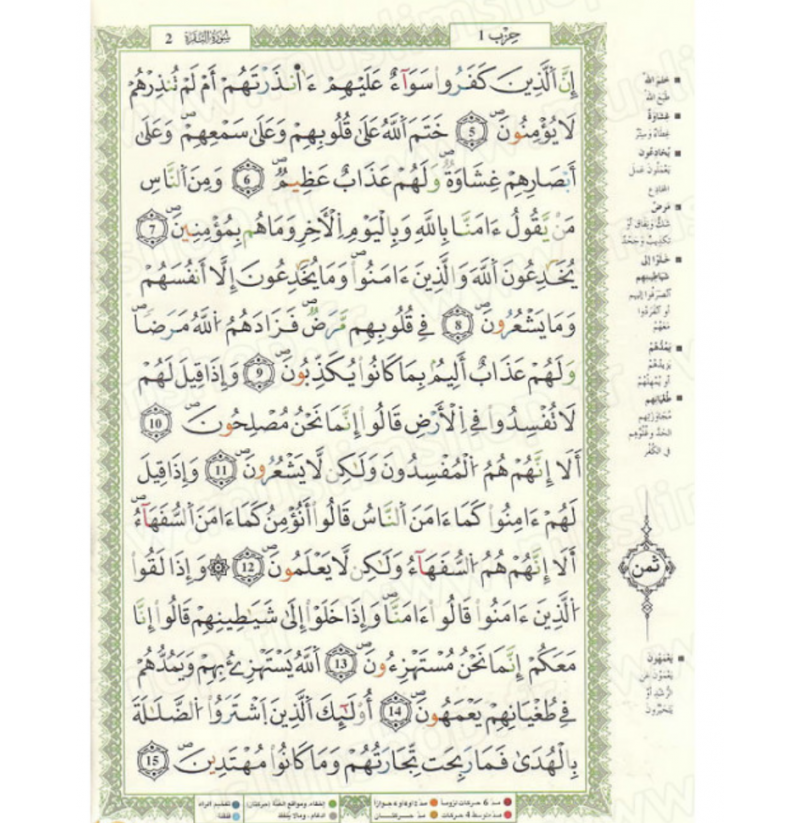 حزب 1
سورة البقرة 2
إِنَّ ٱلَّذِينَ كَفَرُوا۟ سَوَآءٌ عَلَيْهِمْ ءَا۬نذَرْتَهُمْ أَمْ لَمْ تُنذِرْهُمْ
لَا يُؤْمِنُونَ ۖ 5 خَتَمَ ٱللَّهُ عَلَىٰ قُلُوبِهِمْ وَعَلَىٰ سَمْعِهِمْ ۖ وَعَلَىٰ
أَبْصَٰرِهِمْ غِشَٰوَةٌ ۖ وَلَهُمْ عَذَابٌ عَظِيمٌ ۖ 6 وَمِنَ ٱلنَّاسِ
مَنْ يَّقُولُ ءَامَنَّا بِاللَّهِ وَبِالْيَوْمِ اِ۬لْأَخِرِ وَمَا هُم بِمُؤْمِنِينَ ۖ 7
يُخَٰدِعُونَ ٱللَّهَ وَالَّذِينَ ءَامَنُوا۟ ۖ وَمَا يُخَٰدِعُونَ إِلَّا أَنفُسَهُمْ
وَمَا يَشْعُرُونَ ۖ 8 فِي قُلُوبِهِم مَّرَضٌ ۖ فَزَادَهُمُ ٱللَّهُ مَرَضًا ۖ
وَلَهُمْ عَذَابٌ أَلِيمُۢ بِمَا كَانُوا۟ يُكَذِّبُونَ ۖ 9 وَإِذَا قِيلَ لَهُمْ
لَا تُفْسِدُوا۟ فِي اِ۬لْأَرْضِ قَالُوا۟ إِنَّمَا نَحْنُ مُصْلِحُونَ ۖ 10
أَلَا إِنَّهُمْ هُمُ ٱلْمُفْسِدُونَ وَلَٰكِن لَّا يَشْعُرُونَ ۖ 11 وَإِذَا قِيلَ
لَهُمْ ءَامِنُوا۟ كَمَا ءَامَنَ ٱلنَّاسُ قَالُوا۟ أَنُؤْمِنُ كَمَا ءَامَنَ ٱلسُّفَهَآءُ ۖ
أَلَا إِنَّهُمْ هُمُ ٱلسُّفَهَآءُ وَلَٰكِن لَّا يَعْلَمُونَ ۖ 12 ۞ وَإِذَا لَقُوا۟
ٱلَّذِينَ ءَامَنُوا۟ قَالُوا۟ ءَامَنَّا ۖ وَإِذَا خَلَوْا۟ إِلَىٰ شَيَٰطِينِهِمْ قَالُوا۟ إِنَّا
مَعَكُمْ إِنَّمَا نَحْنُ مُسْتَهْزِءُونَ ۖ 13 ٱللَّهُ يَسْتَهْزِئُ بِهِمْ وَيَمُدُّهُمْ
فِي طُغْيَٰنِهِمْ يَعْمَهُونَ ۖ 14 أُو۟لَٰٓئِكَ ٱلَّذِينَ اَ۪شْتَرَوُا۟ ٱلضَّلَٰلَةَ
بِالْهُدَىٰ فَمَا رَبِحَت تِّجَٰرَتُهُمْ وَمَا كَانُوا۟ مُهْتَدِينَ ۖ 15
ختم الله
طبع الله
غشاوة
غطاء وستر
يخادعون
يعملون عمل
المخادع
مرض
شك ونفاق أو
تكذيب وجحد
خلوا إلى
شياطينهم
انصرفوا إليهم
أو انفردوا
معهم
يمدهم
يزيدهم
أو يمهلهم
طغيانهم
مجاوزتهم
الحد وغلوهم
في الكفر
ثمن
يعمهون
يعمون عن
الرشد أو
يتحيرون
مد 6 حركات لزوما
مد 2 أو 4 أو 6 جوازا
إخفاء، ومواقع الغنة (حركتان)
تفخيم الراء
مد متوسط 4 حركات
مد حركتان
ادغام، وما لا يلفظ
قلقلة